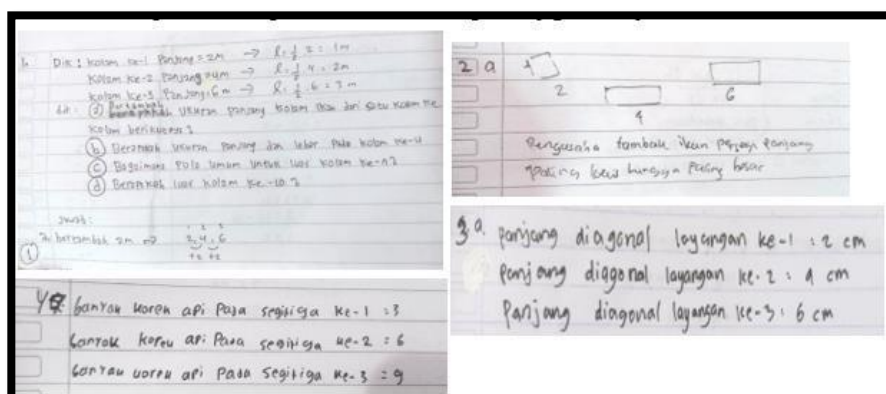 Dik : Kolam ke-1 Panjang = 2m → l = 1/2 . 2 = 1m
Kolam ke-2 Panjang = 4m → l = 1/2 . 4 = 2m
Kolam ke-3 Panjang = 6m → l = 1/2 . 6 = 3m
dit : (a) ukuran panjang kolam ikan dari satu kolam ke
kolam berikutnya ?
(b) Berapakah ukuran panjang dan lebar Pada kolam ke-4
(c) Bagaimana Pola umum untuk luas kolam ke-n ?
(d) Berapakah luas kolam ke-10 ?
Jwab :
1 2 3
a. bertambah 2m → 2, 4, 6
+2 +2
(1)
2 a 1
2
4
6
Pengusaha tambak ikan panjang
paling kecil hingga Paling besar
3 a. panjang diagonal layangan ke-1 : 2 cm
Panjang diagonal layangan ke-2 : 4 cm
Panjang diagonal layangan ke-3 : 6 cm
4 banyak korek api Pada segitiga ke-1 : 3
banyak korek api Pada segitiga ke-2 = 6
banyak korek api Pada segitiga ke-3 = 9